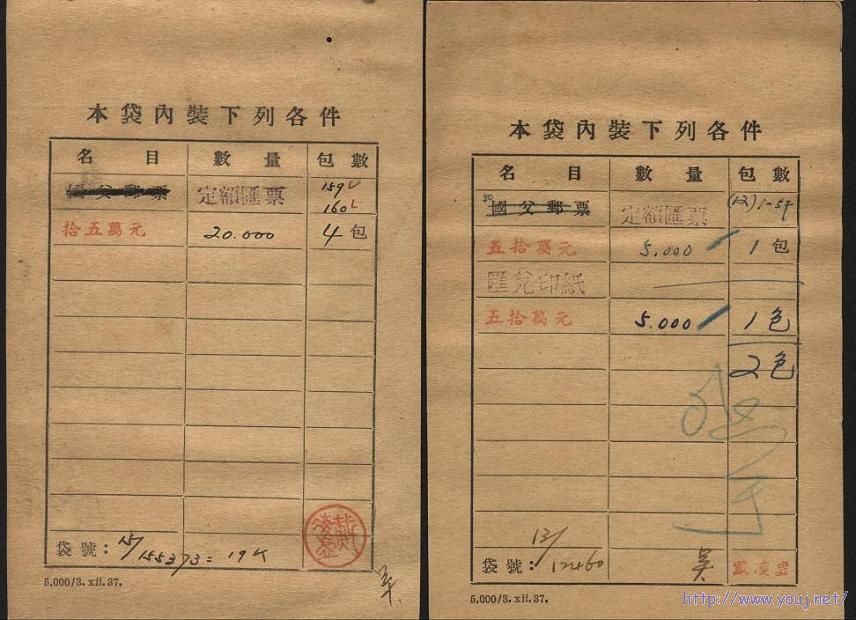 本袋內裝下列各件
名 目 數 量 包 數
國父郵票 定額匯票 159
160
拾五萬元 20.000 4 包
袋號: 15/155373 = 19K
5,000/3. xii. 37.
本袋內裝下列各件
名 目 數 量 包 數
國父郵票 定額匯票 (12) 1-59
五拾萬元 5.000 1 包
匯兌印紙
五拾萬元 5.000 1 包
2 包
袋號: 12/12460 吳
5,000/3. xii. 37.
http://www.youj.net/